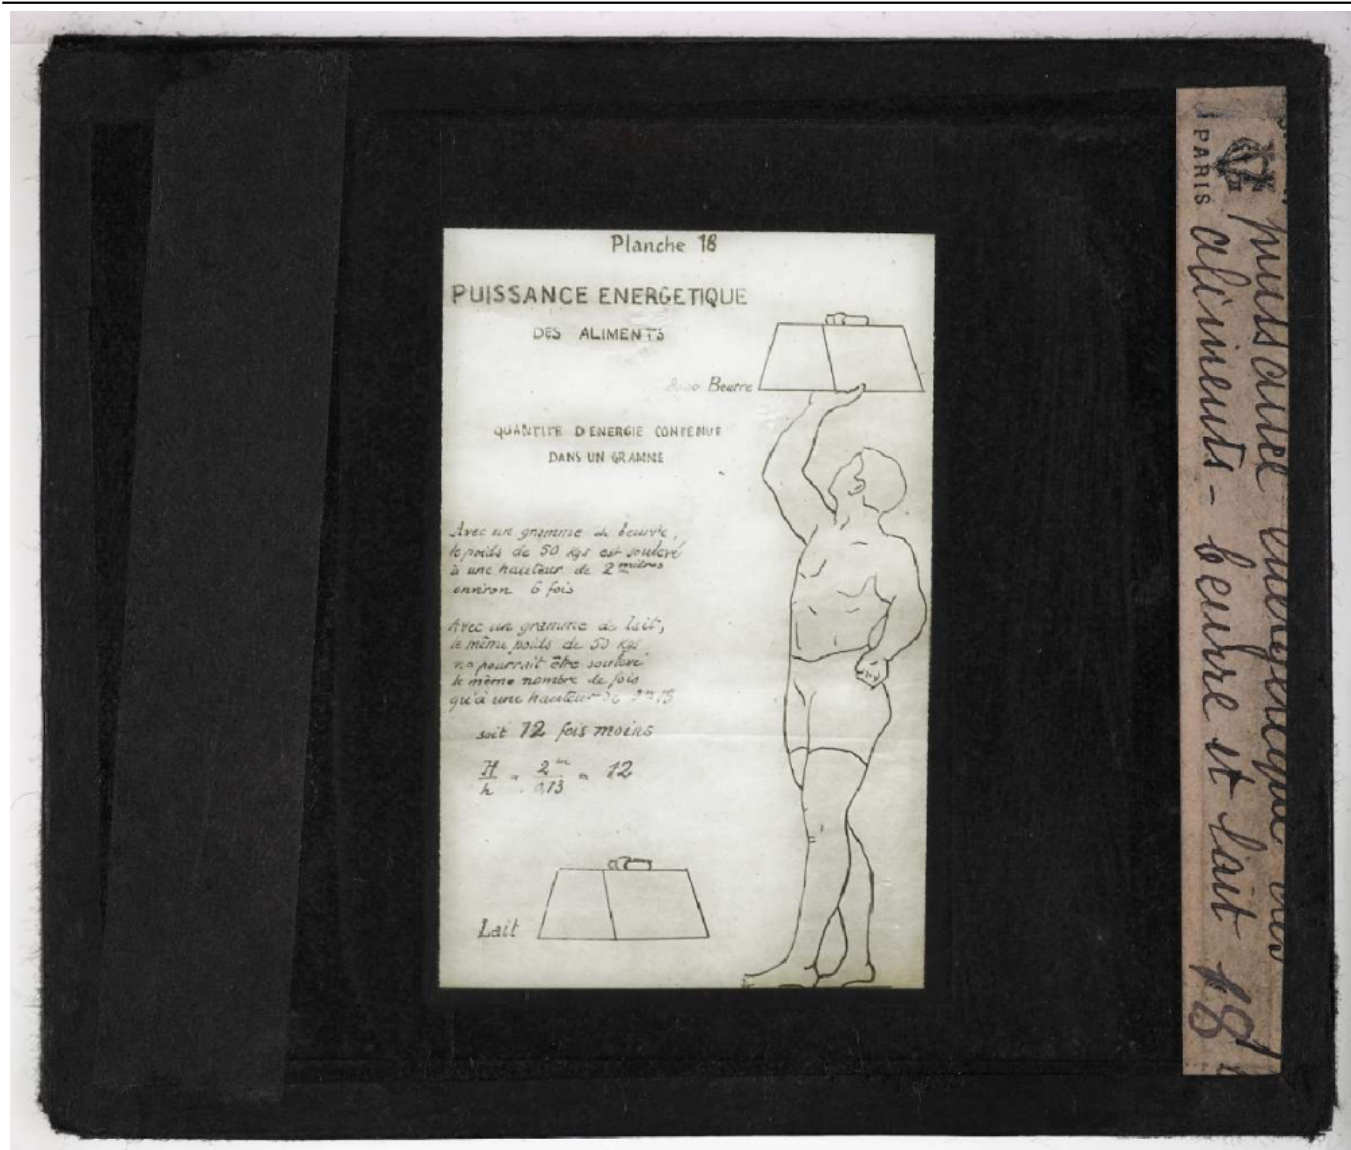 Planche 18
PUISSANCE ENERGETIQUE
DES ALIMENTS
Beurre
QUANTITE D ENERGIE CONTENUE
DANS UN GRAMME
Avec un gramme de beurre,
le poids de 50 kgs est soulevé
à une hauteur de 2 mètres
environ 6 fois
Avec un gramme de lait,
le même poids de 50 kgs
ne pourrait être soulevé
le même nombre de fois
qu'à une hauteur de
soit 12 fois moins
H/h = 2m/0,13 = 12
Lait
PARIS
puissance energetique des
aliments - beurre et lait 18